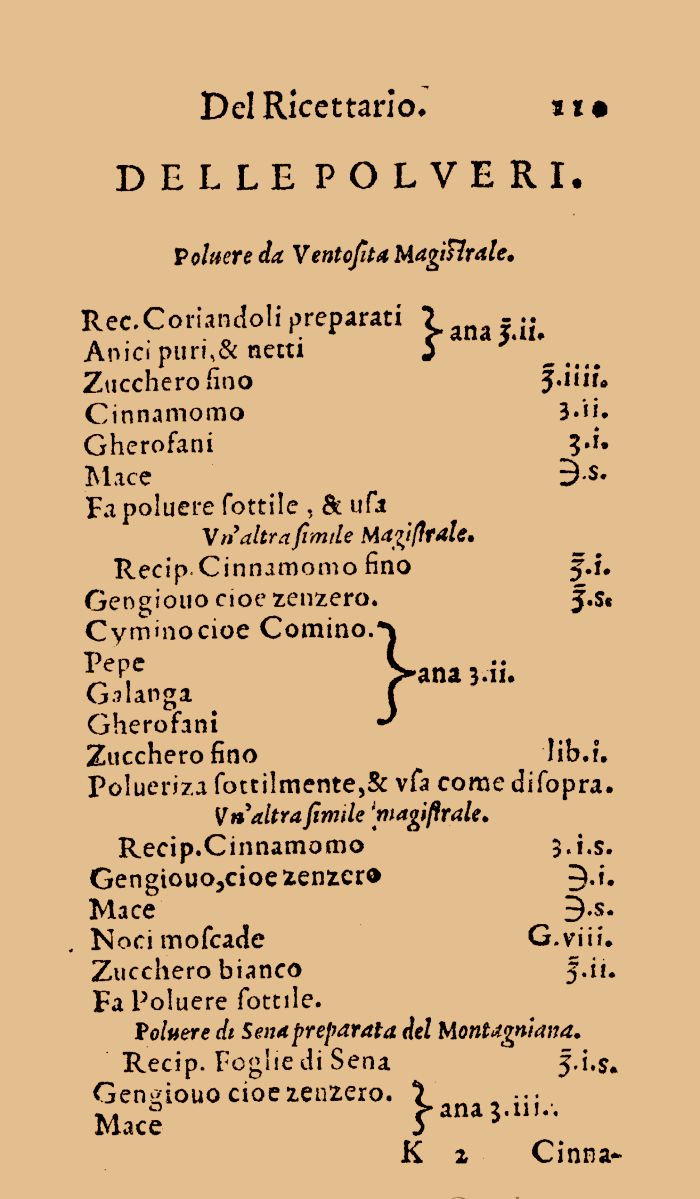 Del Ricettario. 110
DELLE POLVERI.
Poluere da Ventoſita Magiſtrale.
Rec. Coriandoli preparati
Anici puri, & netti } ana ℥.ii.
Zucchero fino ℥.iiii.
Cinnamomo ʒ.ii.
Gherofani ʒ.i.
Mace ℈.s.
Fa poluere ſottile, & uſa
Vn'altra ſimile Magiſtrale.
Recip. Cinnamomo fino ℥.i.
Gengiouo cioe zenzero. ℥.s.
Cymino cioe Comino.
Pepe
Galanga
Gherofani } ana ʒ.ii.
Zucchero fino lib.i.
Polueriza ſottilmente, & vſa come diſopra.
Vn'altra ſimile magiſtrale.
Recip. Cinnamomo ʒ.i.s.
Gengiouo, cioe zenzero ℈.i.
Mace ℈.s.
Noci moſcade G.viii.
Zucchero bianco ℥.ii.
Fa Poluere ſottile.
Poluere di Sena preparata del Montagniana.
Recip. Foglie di Sena ℥.i.s.
Gengiouo cioe zenzero.
Mace } ana ʒ.iii.
K 2 Cinna-